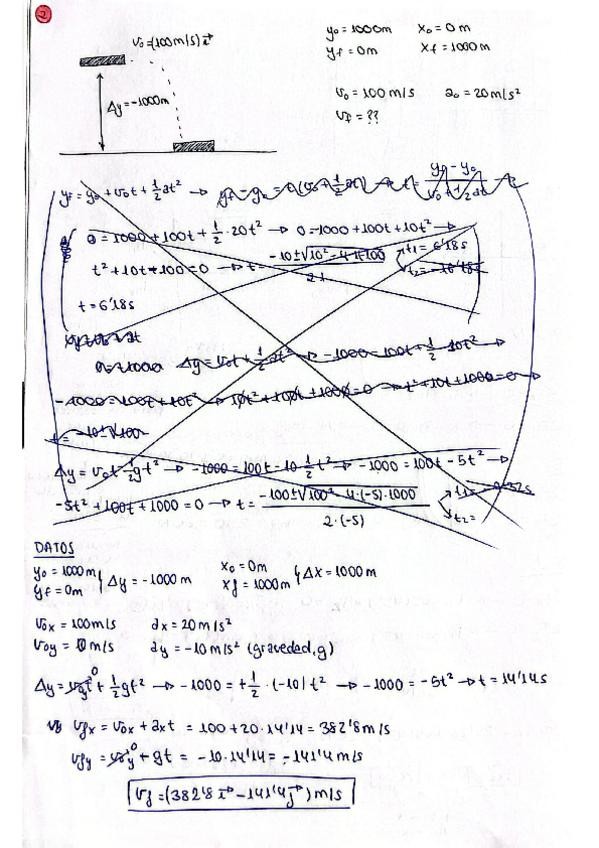 2
v₀=(100m/s)i⃗
y₀=1000m x₀=0m
yf=0m xf=1000m
Δy=-1000m
v₀=100m/s a₀=20m/s²
vf=??
yf=y₀+v₀t+½at² → yf-y₀=t(v₀+½at) → t=(yf-y₀)/(v₀+½at)
0=1000+100t+½·20t² → 0=1000+100t+10t² →
t²+10t+100=0 → t=(-10±√(10²-4·1·100))/(2·1) t₁=6'18s
t₂=-16'18s
t=6'18s
Δy=v₀t+½at² → -1000=100t+½·10t² →
-1000=100t+10t² → 10t²+100t+1000=0 → t²+10t+1000=0 →
t=-10±√100
Δy=v₀t-½gt² → -1000=100t-10·½t² → -1000=100t-5t² →
-5t²+100t+1000=0 → t=(-100±√(100²-4·(-5)·1000))/(2·(-5)) t₁=
t₂=
DATOS
y₀=1000m
yf=0m } Δy=-1000m x₀=0m
xf=1000m } Δx=1000m
v₀x=100m/s ax=20m/s²
v₀y=0m/s ay=-10m/s² (gravedad, g)
Δy=v₀yt+½gt² → -1000=+½·(-10)t² → -1000=-5t² → t=14'14s
vfx=v₀x+axt=100+20·14'14=382'8m/s
vfy=v₀y+gt=-10·14'14=-141'4m/s
vf=(382'8i⃗-141'4j⃗)m/s